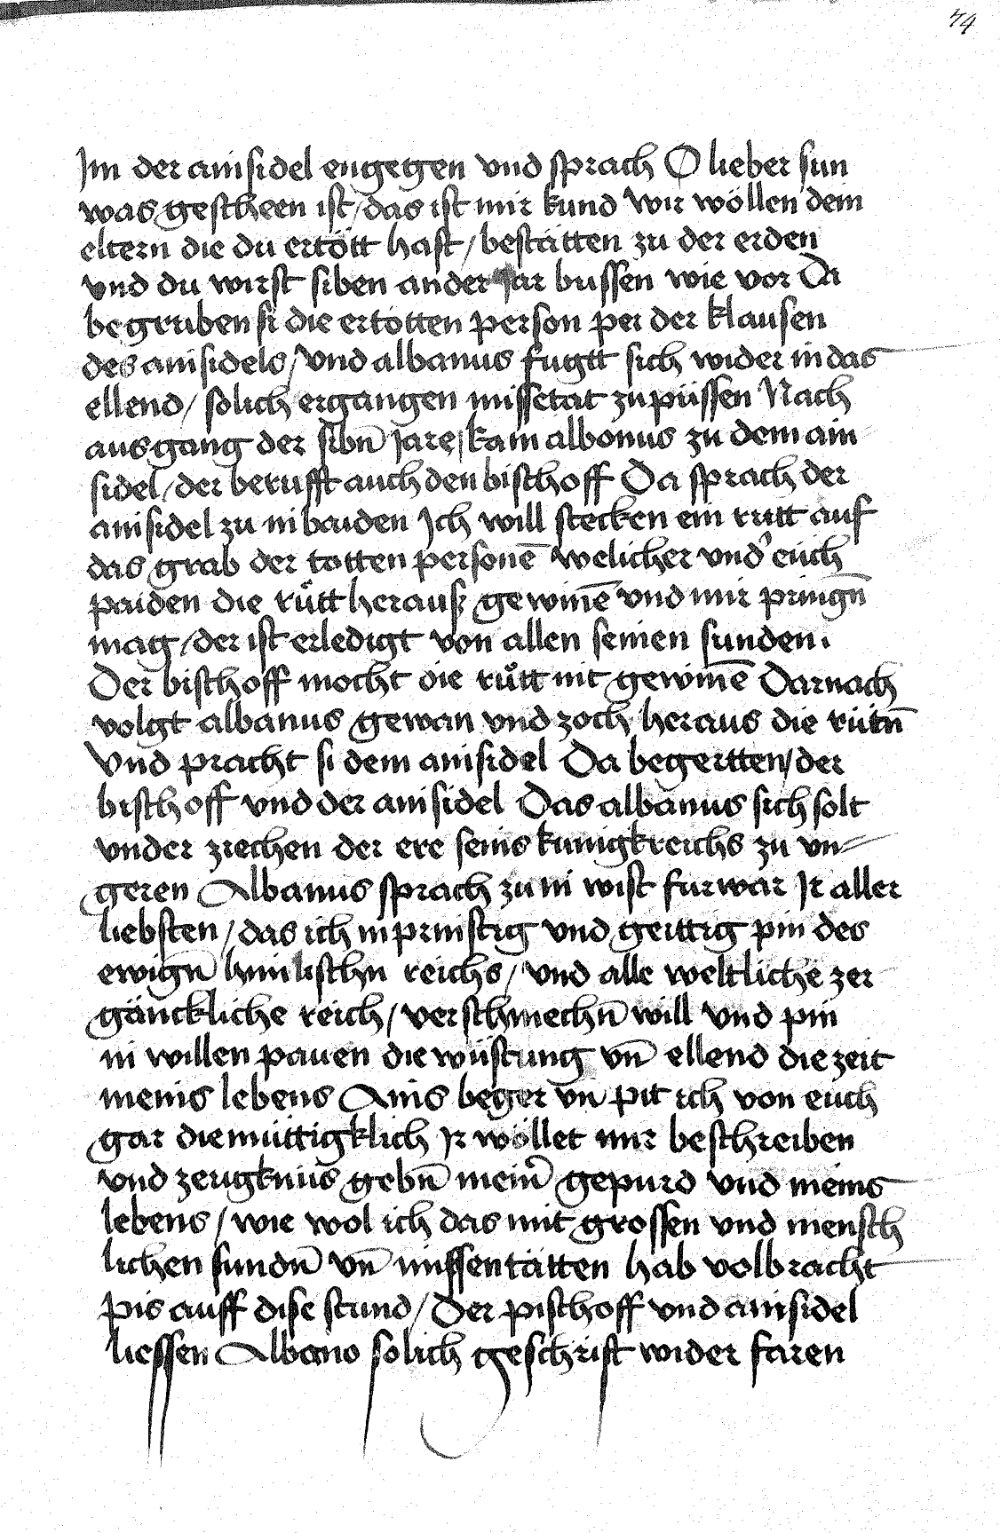 74
Im der ainsidel engegen vnd sprach O lieber sun
was gescheen ist / das ist mir kund Wir wöllen dem
eltern die du ertött hast / bestätten zu der erden
vnd du wirst siben ander Jar bussen wie vor Da
begruben si die ertötten person per der klausen
des ainsidels / Vnd albanus fugtt sich wider in das
ellend / solich ergangen missetat zu püssen Nach
ausgang der sibn̄ Jare / kam albonus zu dem ain
sidel / der berufft auch den bischoff Da sprach der
ainsidel zu in baiden Ich will stecken ein rutt auf
das grab der totten personē welicher vnd' euch
paiden die růtt herausz gewinē vnd mir pringn̄
mag / der ist erledigt von allen seinen sunden.
Der bischoff mocht die růtt nit gewinē Darnach
volgt albanus gewan vnd zoch heraus die rütn̄
Vnd pracht si dem ainsidel Da begertten / der
bischoff vnd der ainsidel Das albanus sich solt
vnder ziechen der ere seins kunigkreichs zu vn-
geren Albanus sprach zu in wist furwar Ir aller
liebsten / das ich inprinstig vnd geittig pin des
ewign̄ himlischn reichs / vnd alle weltliche zer
gänckliche reich / verschmechn̄ will vnd pin
in willen pauen die wüstung vn̄ ellend die zeit
meins lebens Ains beger vn̄ pit ich von euch
gar diemüttigklich Ir wöllet mir beschreiben
vnd zeugknüs gebn̄ mein' gepurd vnd meins
lebens / wie wol ich das mit grossen vnd mensch
lichen sundn̄ vn̄ missentätten hab volbracht
pis auff dise stund / Der pischoff vnd ainsidel
liessen Albano solich geschrift wider faren